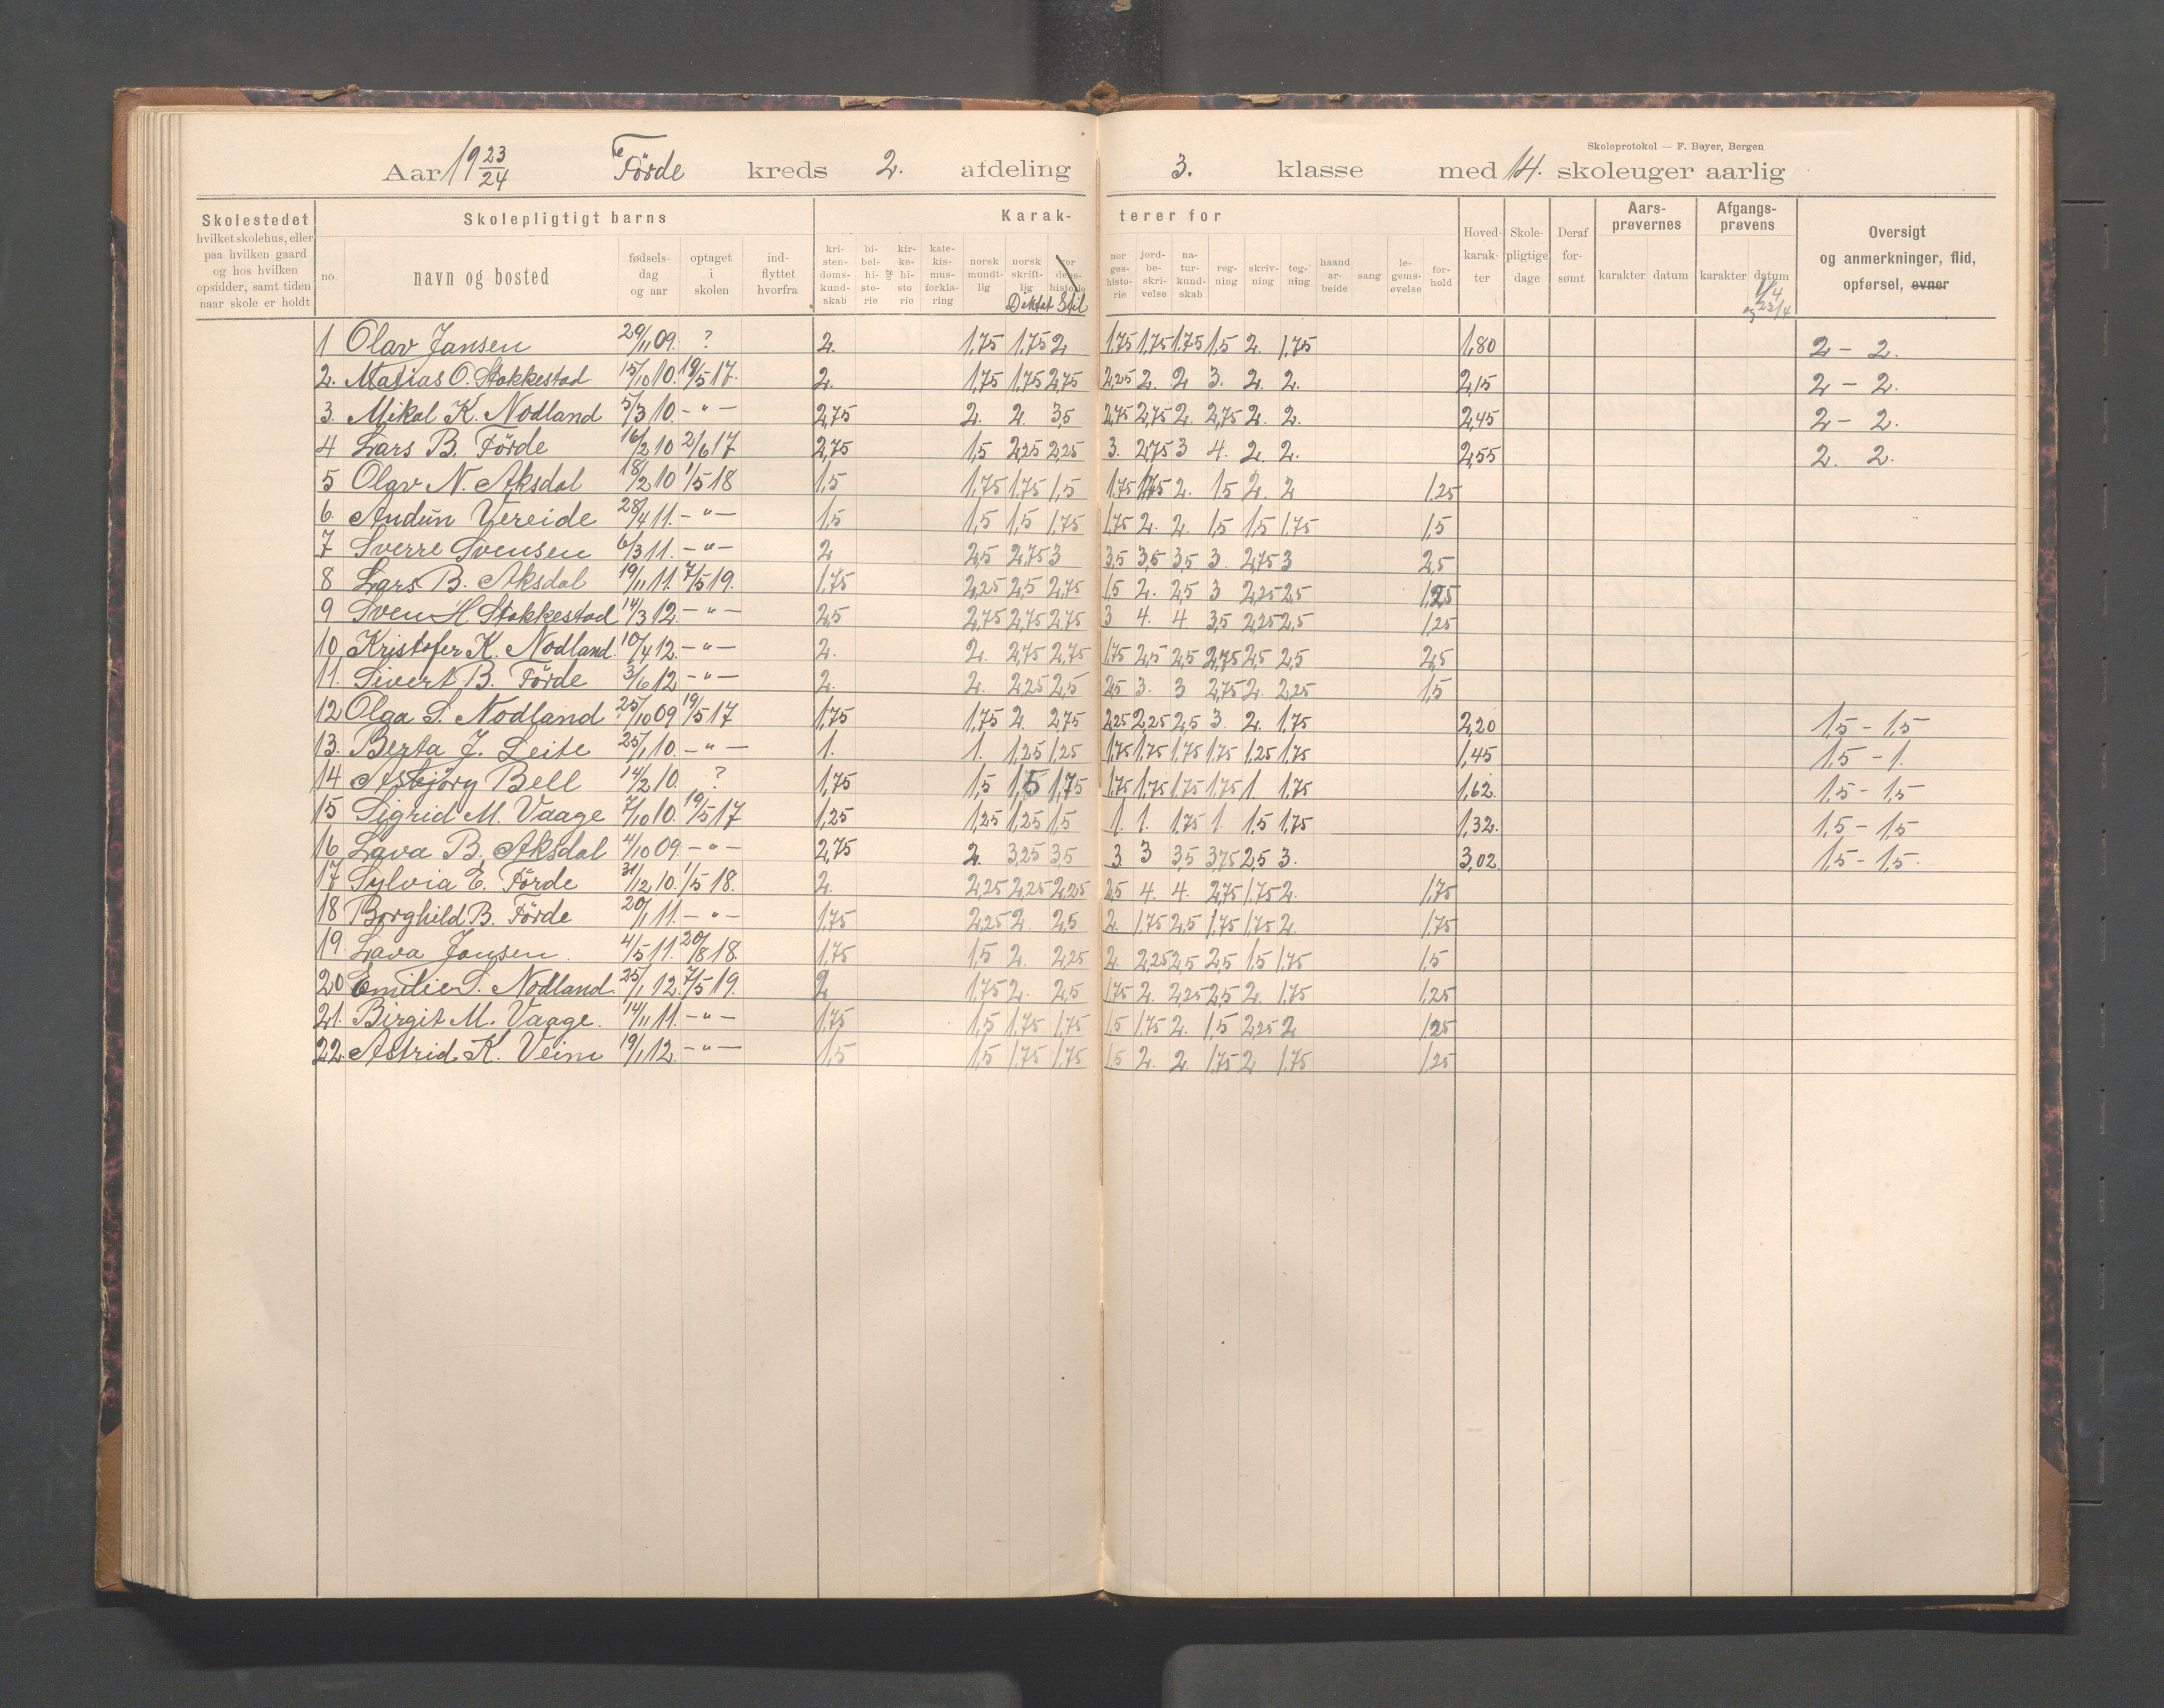 Skoleprotokol — F. Bøyer, Bergen
Aar 19 23/24 Förde kreds 2. afdeling 3. klasse med 14. skoleuger aarlig
Skolestedet hvilket skolehus, eller paa hvilken gaard og hos hvilken opsidder, samt tiden naar skole er holdt
Skolepligtigt barns
no. navn og bosted fødsels- dag og aar optaget i skolen ind- flyttet hvorfra
Karak- terer for
kri- sten- doms- kund- skab bi- bel- hi- sto- rie og kir- ke- hi- sto rie kate- kis- mus- forkla- ring norsk mundt- lig norsk skrift- lig Diktat Stil
nor ges- histo- rie jord- be- skri- velse na- tur- kund- skab reg- ning skriv- ning teg- ning haand ar- beide sang le- gems- øvelse for- hold
Hoved- karak- ter Skole- pligtige dage Deraf for- sømt
Aars- prøvernes karakter datum
Afgangs- prøvens karakter datum 1/4 og 23/4
Oversigt og anmerkninger, flid, opførsel, evner
1 Olav Jansen 29/11 09. ? 2. 1,75 1,75 2 1,75 1,75 1,75 1,5 2. 1,75 1,80 2 – 2.
2. Matias O. Stokkestad 15/10 10. 19/5 17. 2. 1,75 1,75 2,75 2,25 2. 2 3. 2. 2. 2,15 2 – 2.
3. Mikal K. Nodland 5/3 10. – " – 2,75 2. 2. 3,5 2,75 2,75 2. 2,75 2. 2. 2,45 2 – 2.
4 Lars B. Förde 16/2 10 2/6 17 2,75 1,5 2,25 2,25 3. 2,75 3 4. 2. 2. 2,55 2. 2.
5 Olav N. Aksdal 18/2 10 1/5 18 1,5 1,75 1,75 1,5 1,75 1,75 2. 1,5 2. 2 1,25
6. Audun Vereide 28/4 11. – " – 1,5 1,5 1,5 1,75 1,75 2. 2. 1,5 1,5 1,75 1,5
7 Sverre Svensen 6/3 11. – " – 2 2,5 2,75 3 3,5 3,5 3,5 3. 2,75 3 2,5
8 Lars B. Aksdal 19/11 11. 7/5 19. 1,75 2,25 2,5 2,75 1,5 2. 2,5 3 2,25 2,5 1,25
9 Sven H. Stokkestad 14/3 12. – " – 2,5 2,75 2,75 2,75 3 4. 4 3,5 2,25 2,5 1,25
10 Kristofer K. Nodland. 10/4 12. – " – 2. 2. 2,75 2,75 1,75 2,5 2,5 2,75 2,5 2,5 2,5
11. Sivert B. Förde 3/6 12 – " – 2. 2. 2,25 2,5 2,5 3. 3 2,75 2. 2,25 1,5
12 Olga S. Nodland 25/10 09 19/5 17 1,75 1,75 2. 2,75 2,25 2,25 2,5 3. 2. 1,75 2,20 1,5 – 1,5
13. Berta J. Leite 25/1 10. – " – 1. 1. 1,25 1,25 1,75 1,75 1,75 1,75 1,25 1,75 1,45 1,5 – 1.
14 Asbjörg Bell 14/2 10. ? 1,75 1,5 1,5 1,75 1,75 1,75 1,75 1,75 1 1,75 1,62. 1,5 – 1,5
15 Sigrid M. Vaage 7/10 10. 19/5 17 1,25 1,25 1,25 1,5 1. 1. 1,75 1. 1,5 1,75 1,32. 1,5 – 1,5
16 Lava B. Aksdal 4/10 09. – " – 2,75 2. 3,25 3,5 3. 3 3,5 3,75 2,5 3. 3,02. 1,5 – 1,5.
17 Sylvia E. Förde 31/12 10. 1/5 18. 2. 2,25 2,25 2,25 2,5 4. 4. 2,75 1,75 2. 1,75
18 Borghild B. Förde 20/1 11. – " – 1,75 2,25 2. 2,5 2. 1,75 2,5 1,75 1,75 2. 1,75
19. Lava Jansen. 4/5 11. 20/8 18. 1,75 1,5 2. 2,25 2. 2,25 2,5 2,5 1,5 1,75 1,5
20 Emilie S. Nodland. 25/1 12. 7/5 19. 2 1,75 2. 2,5 1,75 2. 2,25 2,5 2. 1,75 1,25
21. Birgit M. Vaage. 14/11 11. – " – 1,75 1,5 1,75 1,75 1,5 1,75 2. 1,5 2,25 2 1,25
22. Astrid K. Veim 19/1 12. – " – 1,5 1,5 1,75 1,75 1,5 2. 2. 1,75 2 1,75 1,25